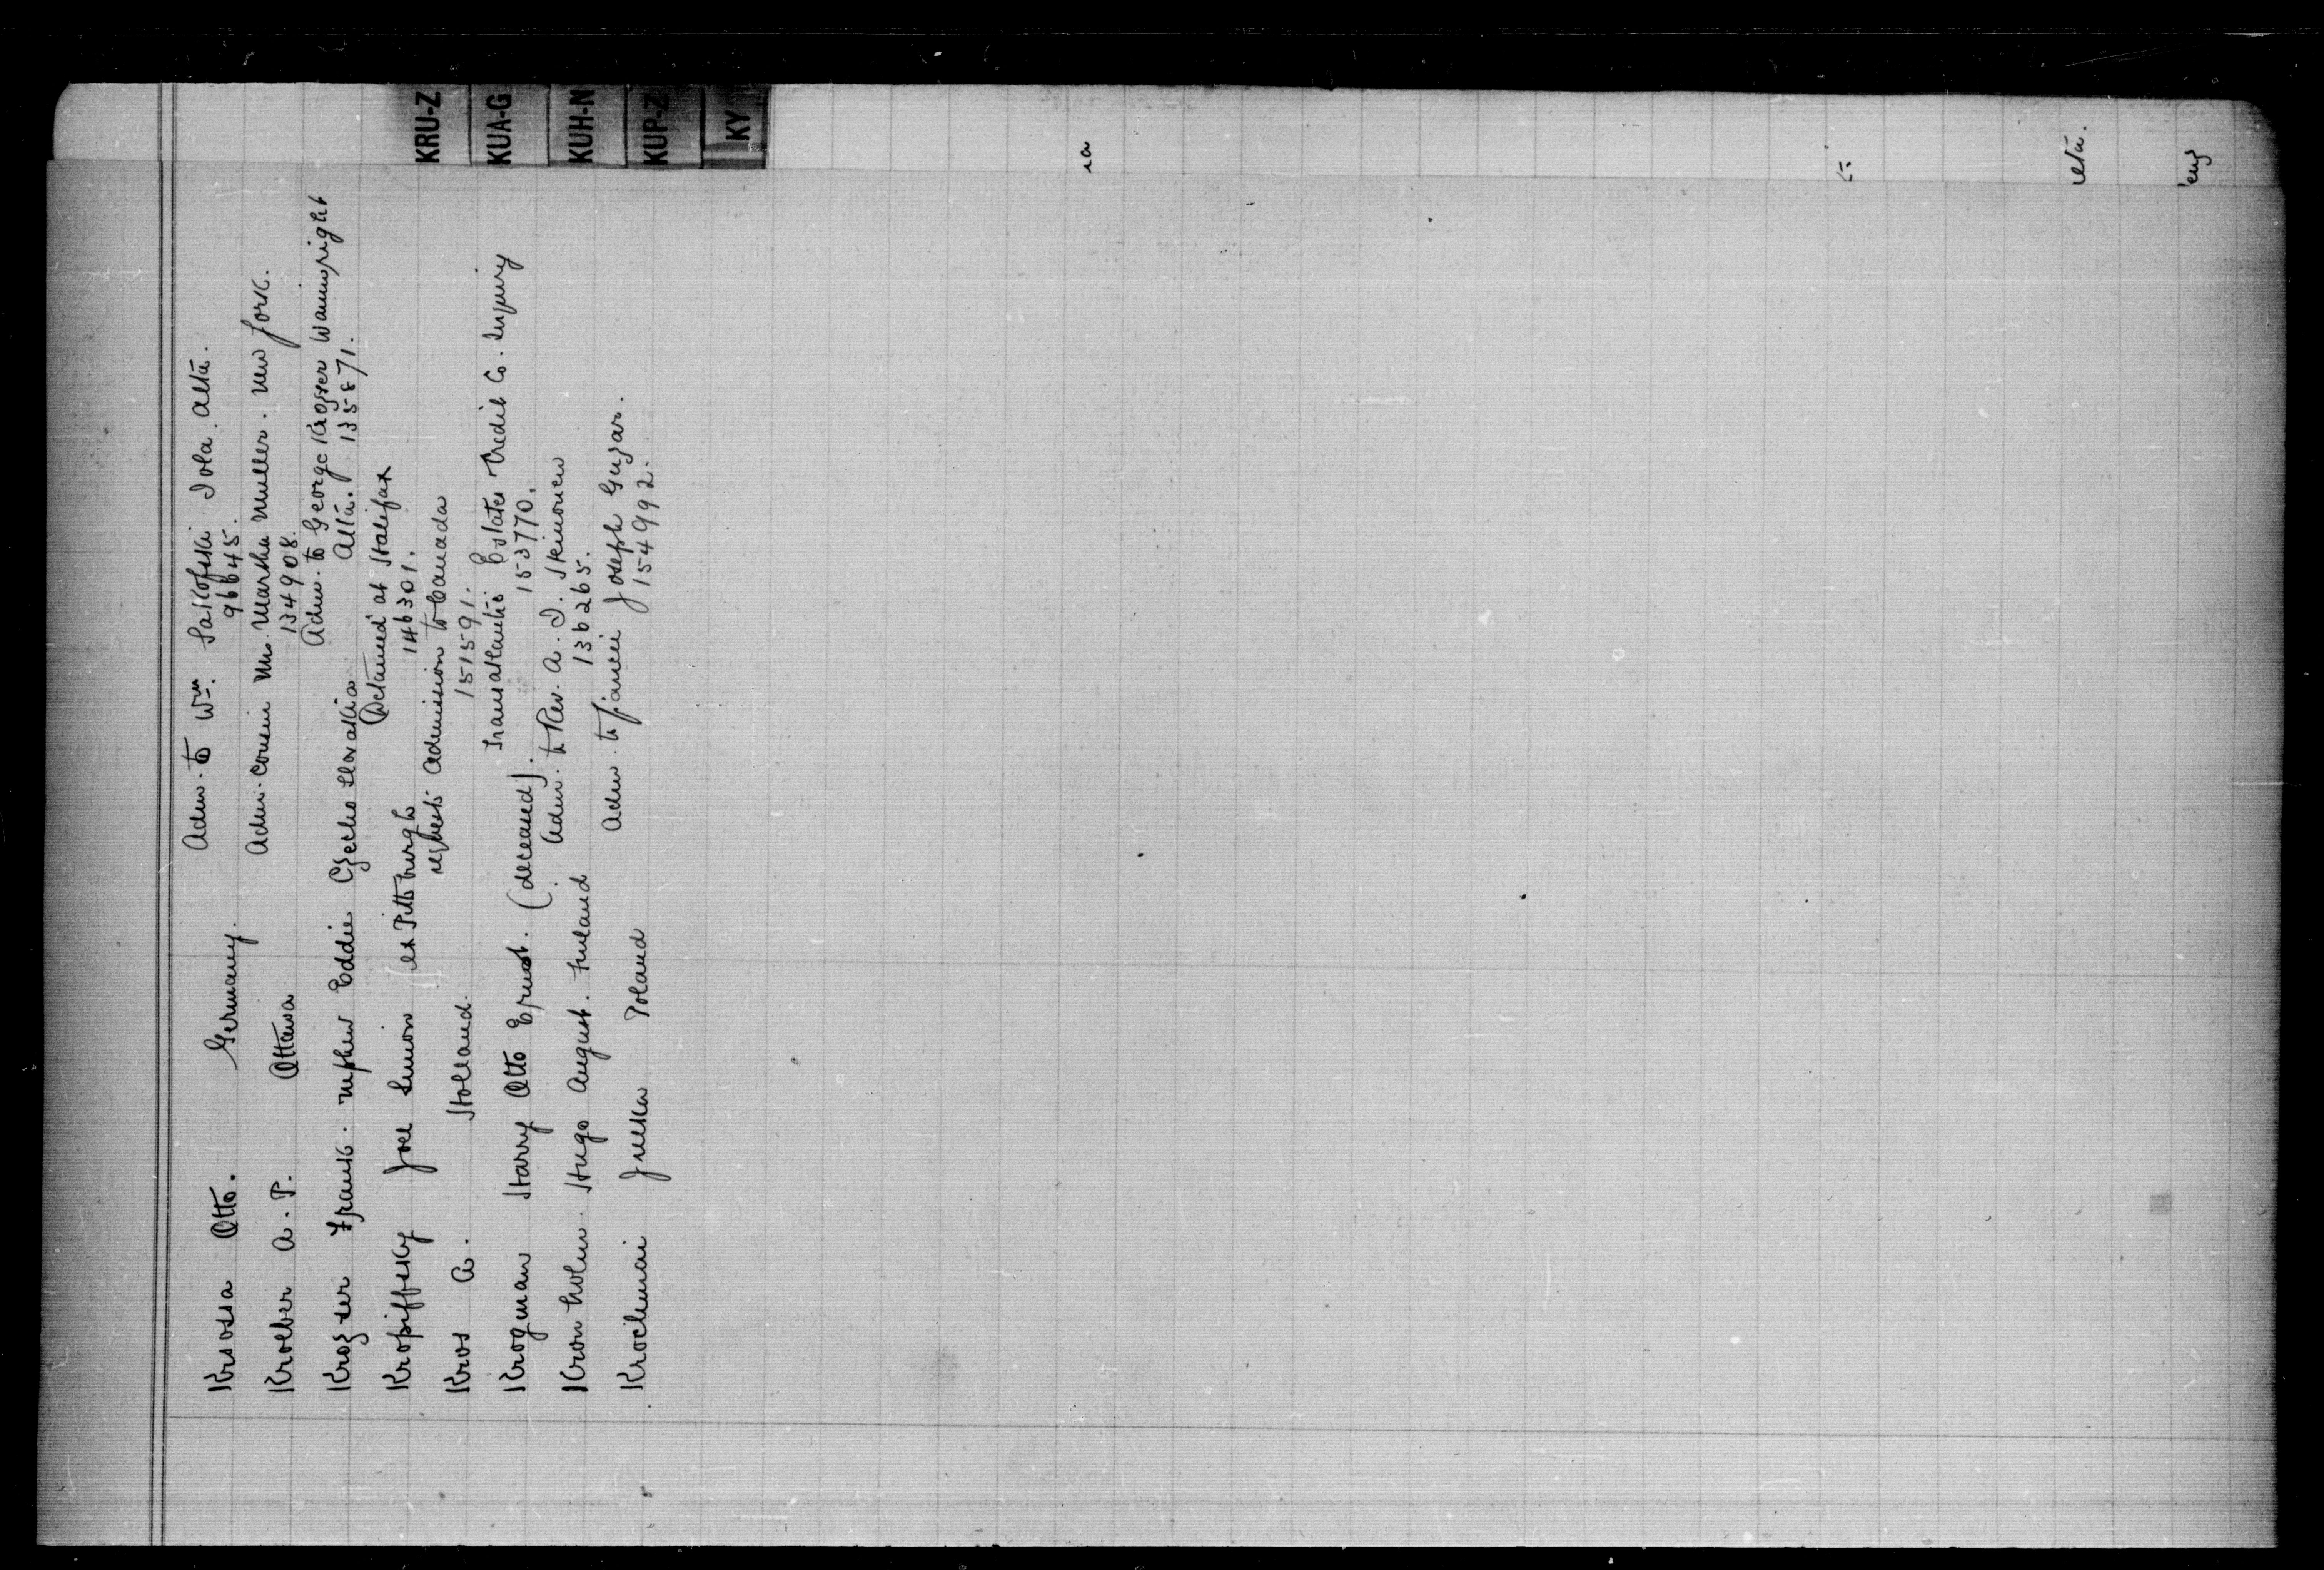 Krossa Otto. Germany. Adm. to Wm. Saikofski Iola. Alta.
96645.
Kroeber A. P. Ottawa Adm. cousin Mrs. Martha Muller. New York.
134908.
Krogster Frank. nephew Eddie Czecho Slovakia Adm. to George Krogster Wainwright
Alta. 135871.
Kropiffsky Joel Simion ex Pittsburgh Detained at Halifax
146301.
Kros A. Holland. requests admission to Canada
151591.
Krogman Harry Otto Ernst. (deceased). Transatlantic Estates Credit Co. Inquiry
153770.
Kronholm Hugo August. Finland Adm. to Rev. A. I. Skinonen
136265.
Krochmai Julka Poland Adm. to fiancee Joseph Guzar.
154992.
KRU-Z
KUA-G
KUH-N
KUP-Z
KY